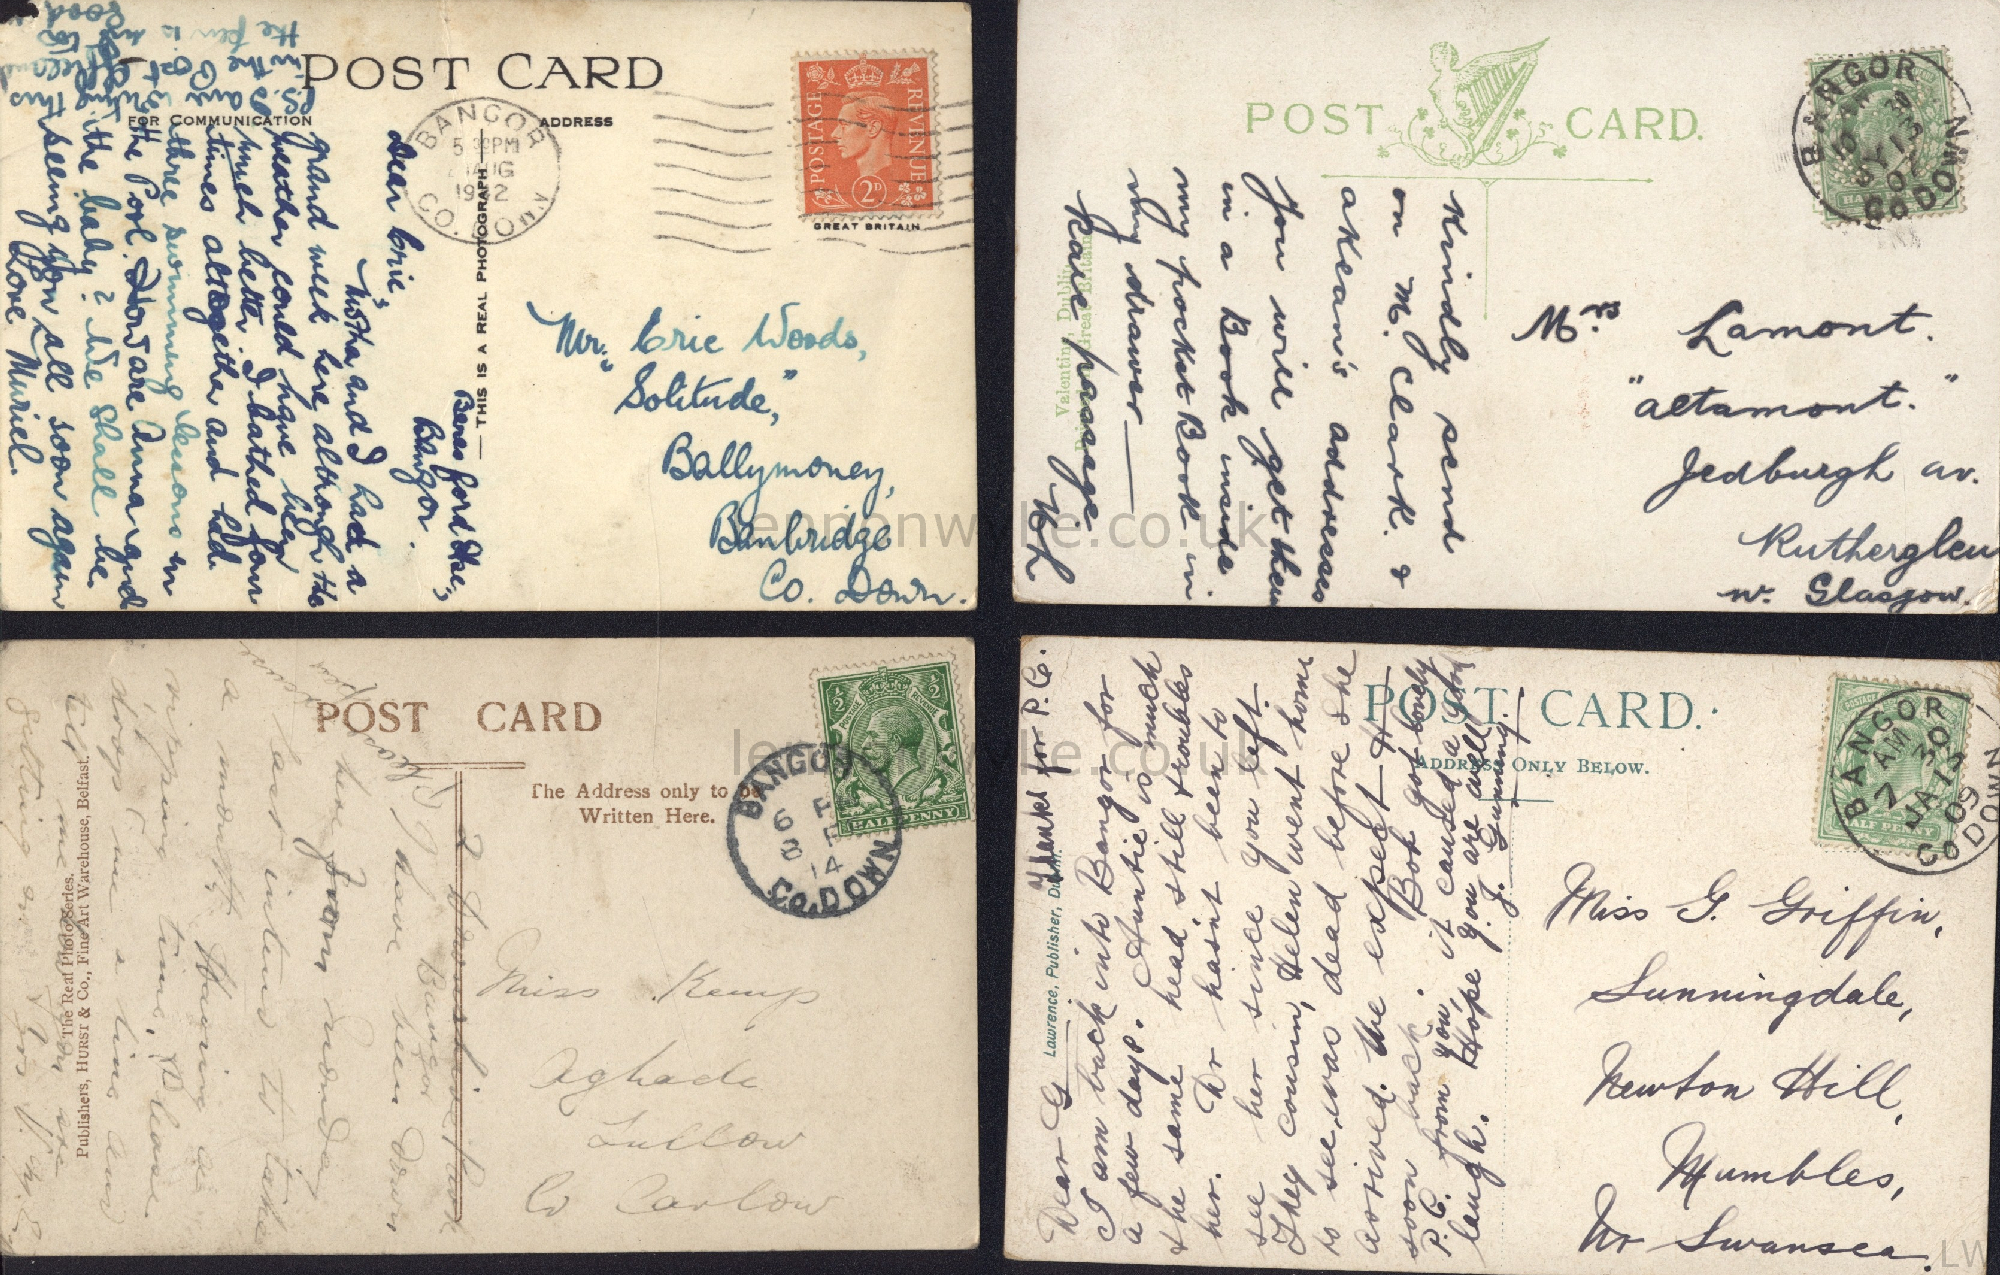 POST CARD
FOR COMMUNICATION
ADDRESS
BANGOR
CO. DOWN
POSTAGE
REVENUE
2D
GREAT BRITAIN
THIS IS A REAL PHOTOGRAPH
Bangor.
Dear Eric,
Mother and I had a
grand week here although the
weather could have been
much better. I bathed four
times altogether and had
three swimming lessons in
the Pool. How are Anna and
the baby? We shall be
seeing you all soon again
Love Muriel.
P.S.
Mr. Eric Woods,
"Solitude,"
Ballymoney,
Banbridge
Co. Down.
POST CARD.
BANGOR
CO DOWN
Valentine, Dublin
Kindly send
on M. Clark. &
aKean's addresses
You will get them
in a Book inside
my pocket Book in
my drawer
Mrs. Lamont.
"altamont."
Jedburgh av.
Rutherglen
nr. Glasgow.
lennonwylie.co.uk
POST CARD
The Address only to be
Written Here.
BANGOR
6 P
14
CO. DOWN
HALFPENNY
The Real Photo Series.
Publishers, HURST & Co., Fine Art Warehouse, Belfast.
Bangor
I have been down
here from monday
last intend to take
a month
time, Please
drop me a line and
tell me how you are
getting on
Miss Kemp
Aghade
Tullow
Co Carlow
lennonwylie.co.uk
POST CARD.
ADDRESS ONLY BELOW.
BANGOR
7 30 AM
JA 13
09
CO DOWN
HALF PENNY
Lawrence, Publisher, Dublin.
Thanks for P.C.
Dear G
I am back into Bangor for
a few days. Auntie is much
the same head still troubles
her. Dr hasnt been to
see her since you left.
They cousin, Helen went home
to see, was dead before she
arrived. We expect H
soon back. Bob got bonely
P.C. from you, it caused a
laugh. Hope you are well
J. Gunning.
Miss G. Griffin,
Sunningdale,
Newton Hill,
Mumbles,
Nr Swansea.
LW